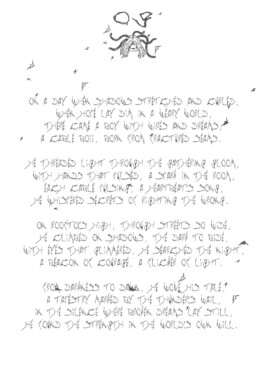 ON A DAY WHEN SHADOWS STRETCHED AND CURLED,
WHEN HOPE LAY DIM IN A WEARY WORLD,
THERE CAME A BOY WITH WIRES AND DREAMS,
A CABLE BOY, BORN FROM FRACTURED SEAMS.
HE THREADED LIGHT THROUGH THE GATHERING GLOOM,
WITH HANDS THAT PULSED, A STAR IN THE ROOM,
EACH CABLE PULSING, A HEARTBEAT'S SONG,
HE WHISPERED SECRETS OF RIGHTING THE WRONG.
ON ROOFTOPS HIGH, THROUGH STREETS SO WIDE,
HE CLIMBED ON SHADOWS, THE DARK TO RIDE,
WITH EYES THAT GLIMMERED, HE SEARCHED THE NIGHT,
A BEACON OF COURAGE, A FLICKER OF LIGHT.
FROM DARKNESS TO DAWN, HE WOVE HIS TALE,
A TAPESTRY MARKED BY THE THUNDER'S WAIL,
IN THE SILENCE WHERE BROKEN DREAMS LAY STILL,
HE FOUND THE STRENGTH IN THE WORLD'S OWN WILL.